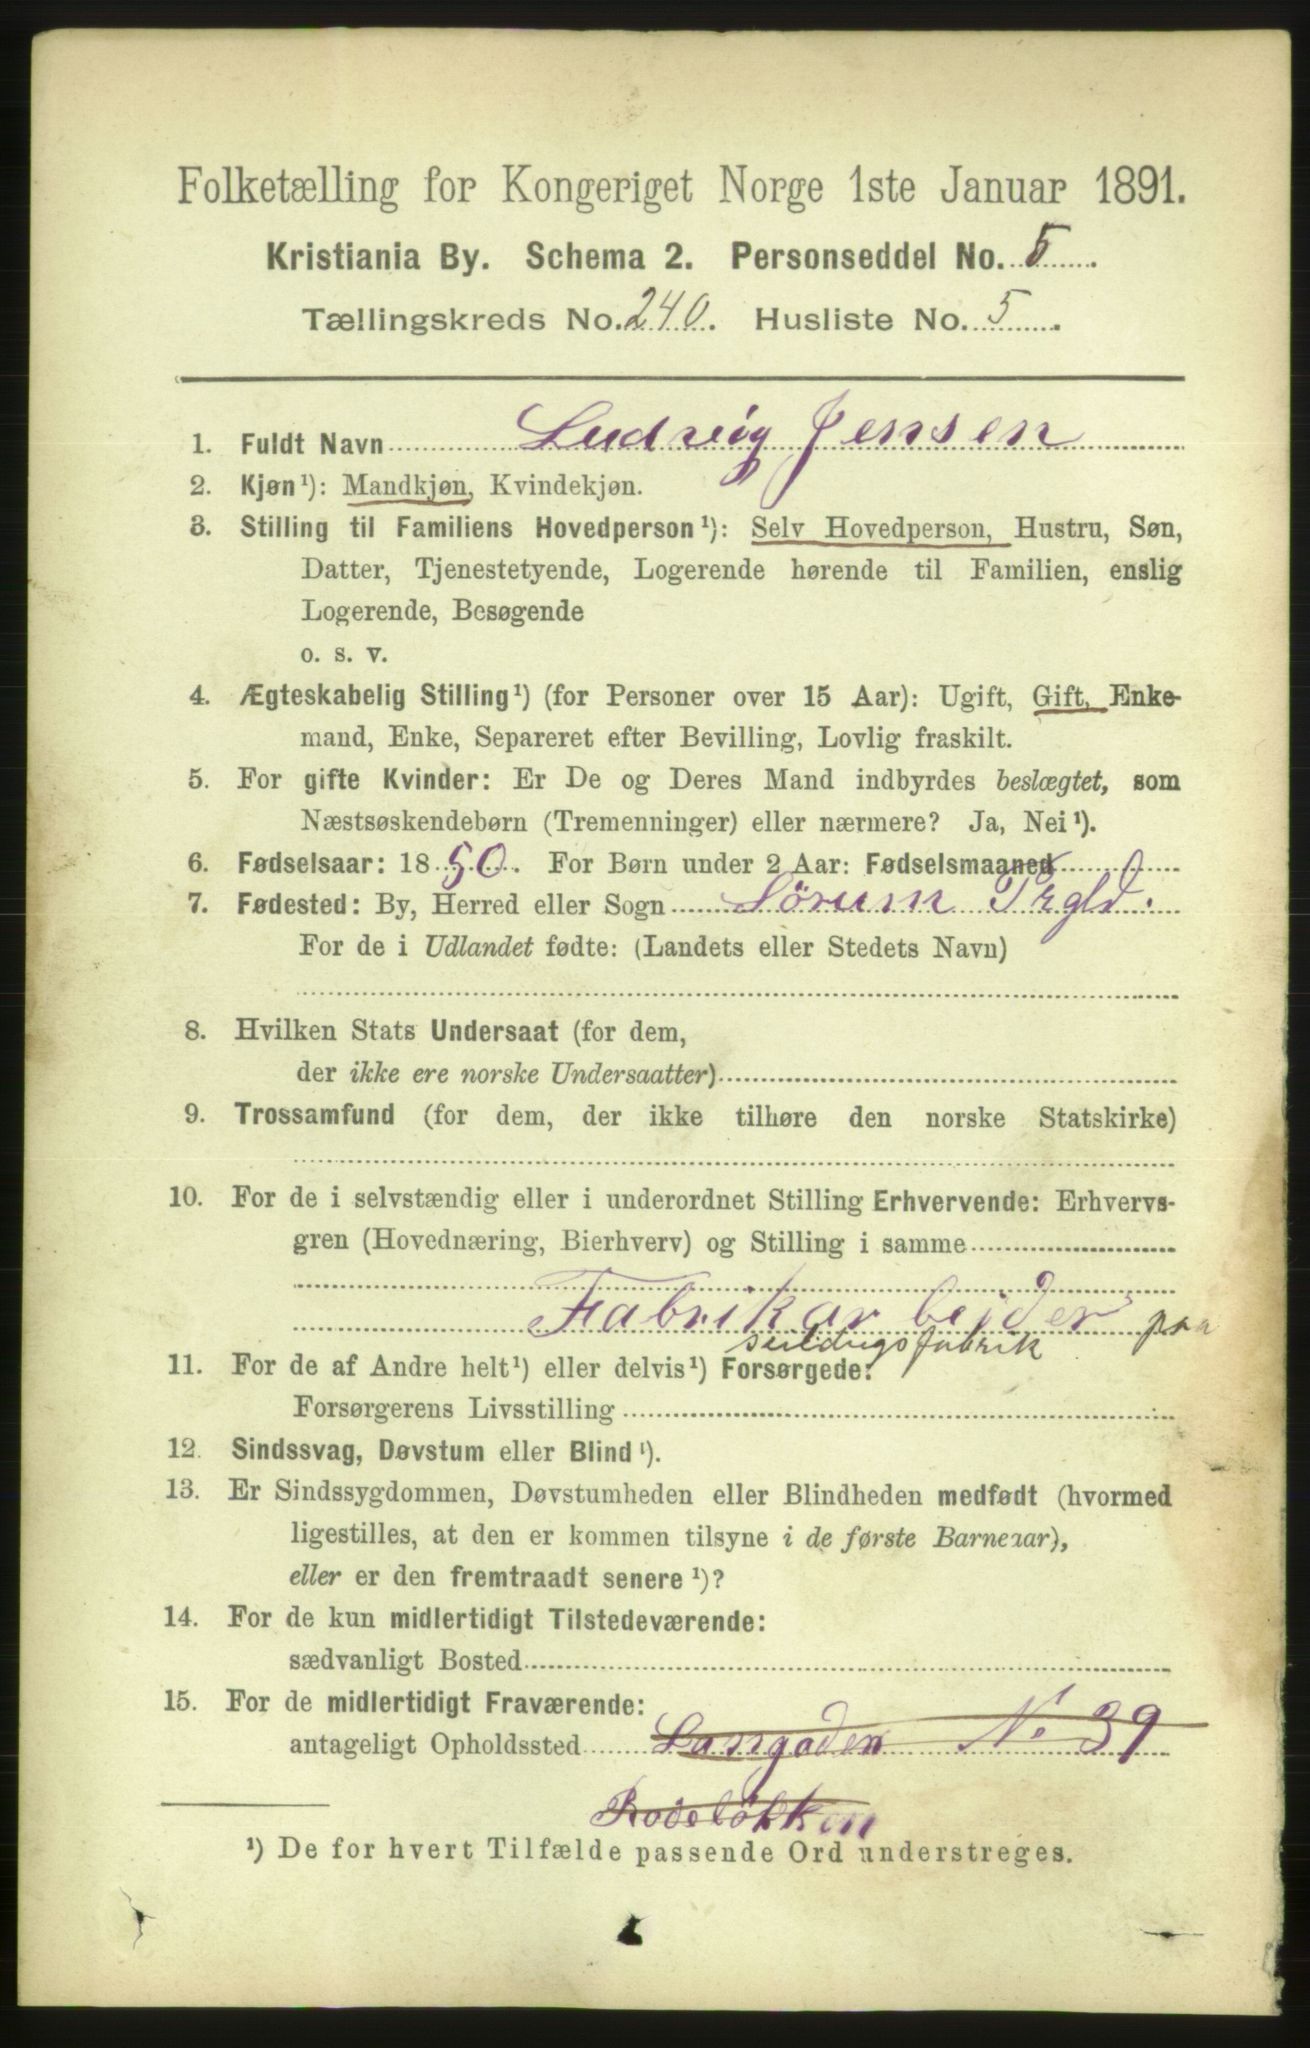 Folketælling for Kongeriget Norge 1ste Januar 1891.
Kristiania By. Schema 2. Personseddel No. 5
Tællingskreds No. 240. Husliste No. 5.
1. Fuldt Navn Ludvig Jensen
2. Kjøn¹): Mandkjøn, Kvindekjøn.
3. Stilling til Familiens Hovedperson¹): Selv Hovedperson, Hustru, Søn,
Datter, Tjenestetyende, Logerende hørende til Familien, enslig
Logerende, Besøgende
o. s. v.
4. Ægteskabelig Stilling¹) (for Personer over 15 Aar): Ugift, Gift, Enke-
mand, Enke, Separeret efter Bevilling, Lovlig fraskilt.
5. For gifte Kvinder: Er De og Deres Mand indbyrdes beslægtet, som
Næstsøskendebørn (Tremenninger) eller nærmere? Ja, Nei¹).
6. Fødselsaar: 1850. For Børn under 2 Aar: Fødselsmaaned
7. Fødested: By, Herred eller Sogn Sörum Prgld.
For de i Udlandet fødte: (Landets eller Stedets Navn)
8. Hvilken Stats Undersaat (for dem,
der ikke ere norske Undersaatter)
9. Trossamfund (for dem, der ikke tilhøre den norske Statskirke)
10. For de i selvstændig eller i underordnet Stilling Erhvervende: Erhvervs-
gren (Hovednæring, Bierhverv) og Stilling i samme
Fabrikarbejder paa
seildugsfabrik
11. For de af Andre helt¹) eller delvis¹) Forsørgede:
Forsørgerens Livsstilling
12. Sindssvag, Døvstum eller Blind¹).
13. Er Sindssygdommen, Døvstumheden eller Blindheden medfødt (hvormed
ligestilles, at den er kommen tilsyne i de første Barneaar),
eller er den fremtraadt senere¹)?
14. For de kun midlertidigt Tilstedeværende:
sædvanligt Bosted
15. For de midlertidigt Fraværende:
antageligt Opholdssted Langaden No 39
Rodeløkken
¹) De for hvert Tilfælde passende Ord understreges.